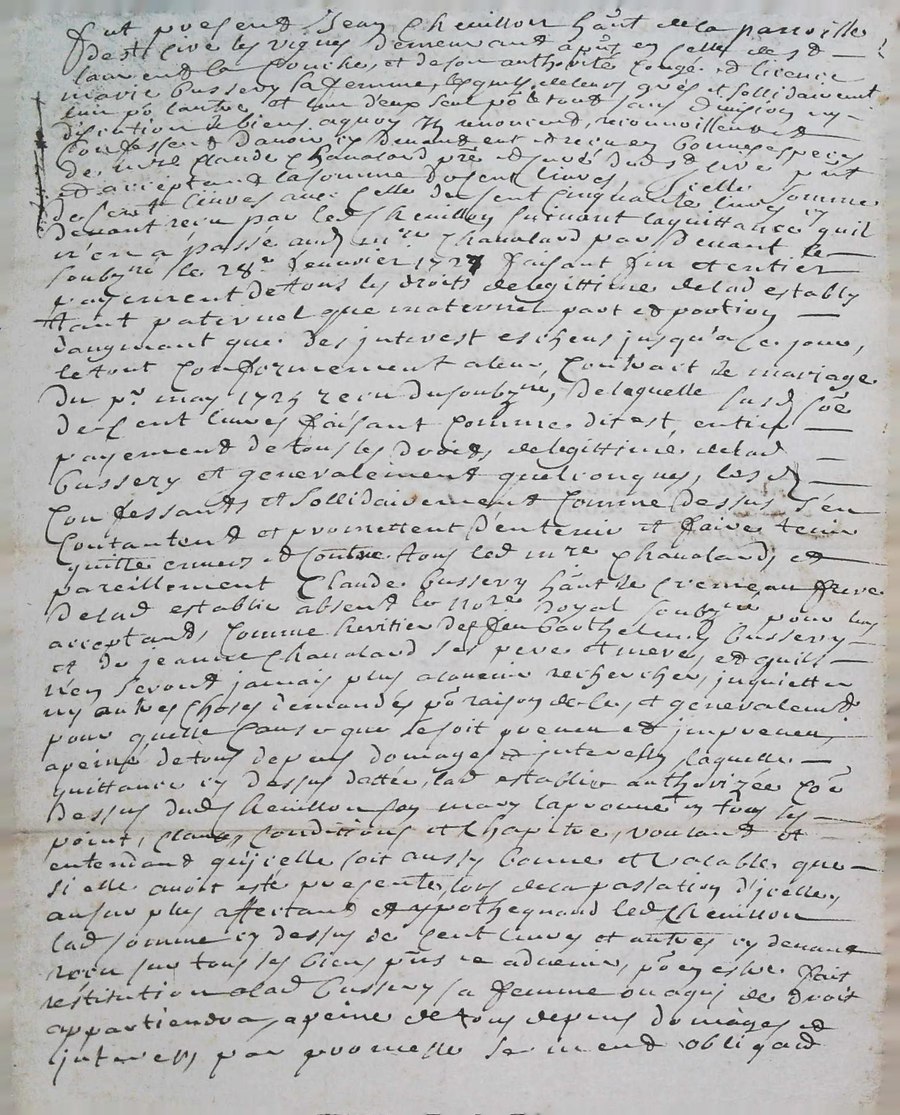 fut present Jean Chevillon hãnt de la parroisse
de st cire les vignes demeurant apñt en celle de st
laurend la Conche, et de son authorité Congé et licence
marie Bussery sa femme, lesquels de leurs grés et sollidairement
lun põ lautre et lun deux seul põ le tout sans division ny
discution de biens aquoy ils renoncend, reconnoissend et
Confessend davoir cy devand eut et receu en bonnes especes
de mre Claude Chavaland pre et curé dud st cire pñt
et acceptand la somme de Cent livres Icelle somme
de Cent livres avec celle de Cent Cinquante livres cy
devant receu par led Chevillon suivant la quittance quil
n'en a passé aud mre Chavaland par devant le
soubzné le 28e Janvier 1727 faisant fin et entier
payement de tous les droits de legittime de lad establye
tant paternel que maternel part et portion
daugmant que des interest escheus jusqu'a ce jour,
le tout Conformement a leur Contrait de mariage
du pr may 1725 receu du soubzné, de laquelle susd soẽ
de Cent livres faisant Comme dit est, entier
payement de tous les droits de legittime de lad
Bussery et generalement quelconques, les d
Confessants et sollidairement Comme dessus s'en
Contantend et promettent d'en tenir et faire tenir
quitte envers et Contre tous led mre Chavaland, et
pareillement Claude Bussery hãnt de Cremeau frere
de lad establie absent le nore Royal soubzné pour luy
acceptand, Comme heritier de feu Barthelemy Bussery
et de jeanne Chavaland ses pere et mere, et quils
n'en seront jamais plus a lavenir recherches, inquiettes
ny autres choses demandés põ raison de ce, et generalement
pour quelle cause que se soit preveu et impreveu,
apeine de tous depens domages et interests, laquelle
quittance cy dessus dattée, lad establie authorizée Coẽ
dessus dud Chevillon son mary lapprouve en tous les
point, clauses, Conditions et chapitre, voulant et
entendand quicelle soit aussy bonne et valable que
si elle avoit esté presente lors de la passation d'icelle,
au sur plus affectand et ypothequand led Chevillon
lad somme cy dessus de Cent livres et autres cy devant
receu sur tous ses biens pñts et advenir, põ en estre fait
restitution a lad Bussery sa femme ou a qui de droit
appartiendra, apeine de tous depens domages et
interests par promesse serment obligaõn